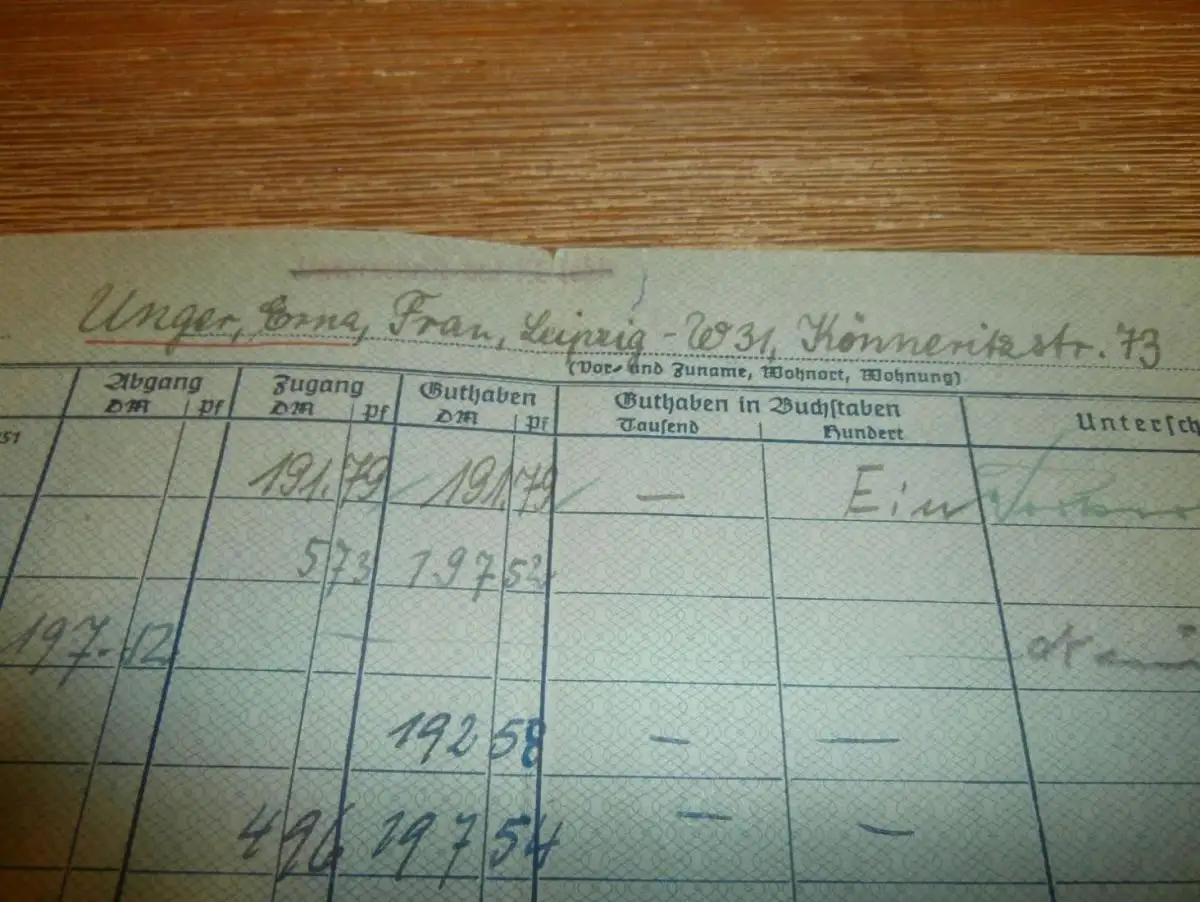 Unger, Erna, Frau, Leipzig - W 31, Könneritzstr. 73
(Vor- und Zuname, Wohnort, Wohnung)
Abgang Zugang Guthaben Guthaben in Buchstaben Untersch
DM Pf DM Pf DM Pf Tausend Hundert
51 191.79 191.79 — Ein
5 73 197 52
197.- —
192 58 — —
4 96 197 54 — —